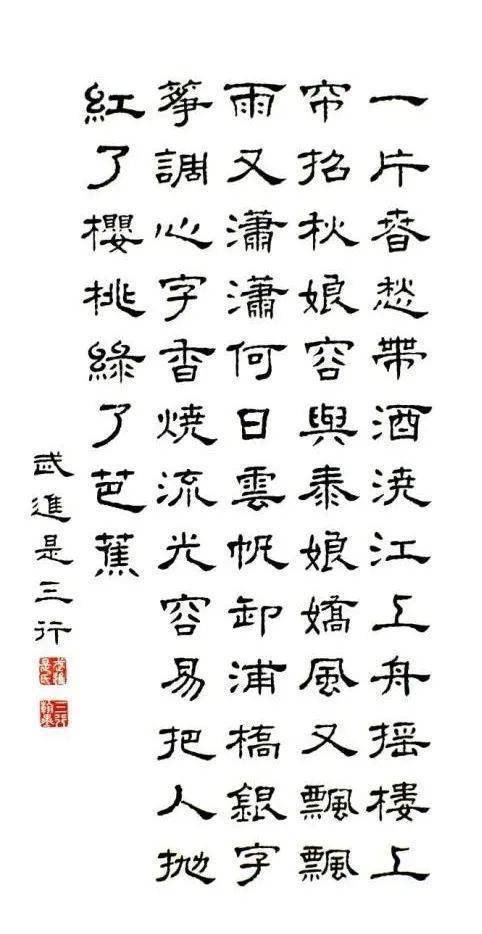 一片春愁帶酒澆江上舟搖樓上
帘招秋娘容與泰娘嬌風又飄飄
雨又瀟瀟何日雲帆卸浦橋銀字
箏調心字香燒流光容易把人拋
紅了櫻桃綠了芭蕉
武進是三行
武進是氏
三行翰墨